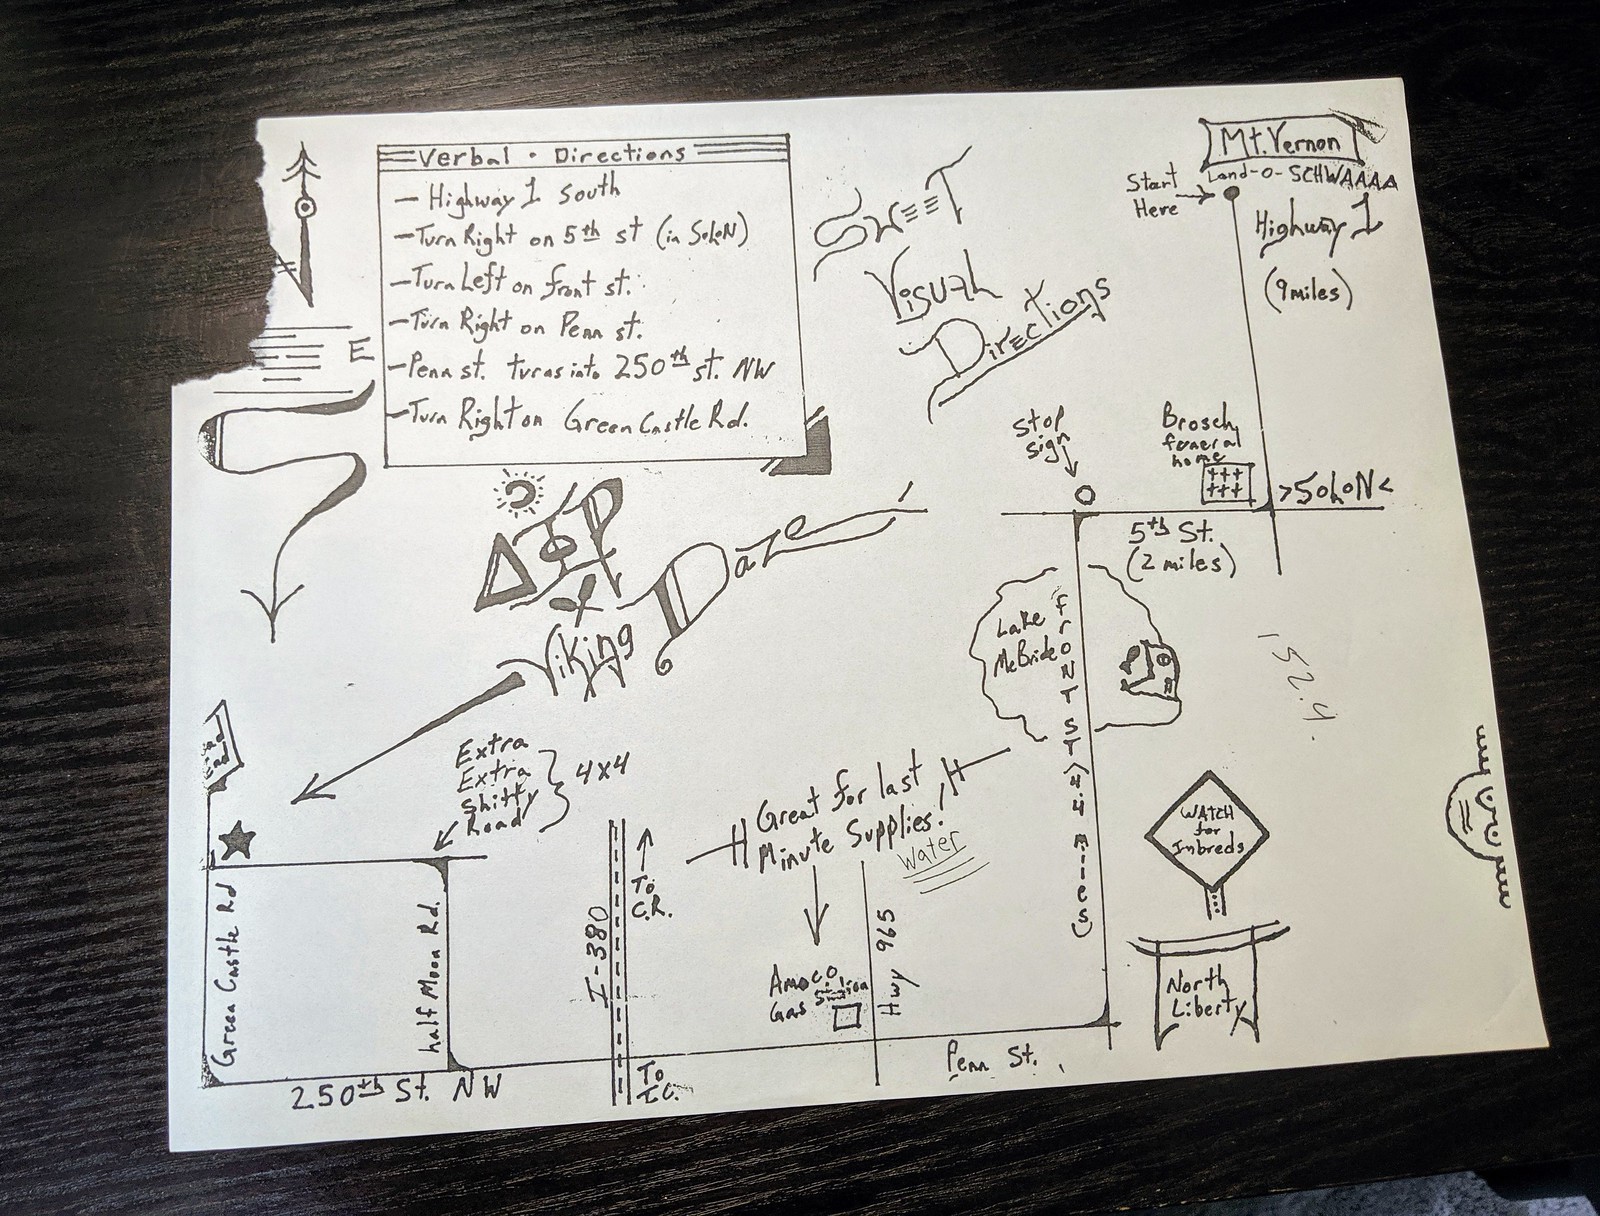 Verbal · Directions
– Highway 1 South
– Turn Right on 5th st (in SoLoN)
– Turn Left on front st.
– Turn Right on Penn st.
– Penn st. turns into 250th st. NW
– Turn Right on Green Castle Rd.
E
SwEET
Visual
Directions
Mt. Vernon
Land-o-SCHWAAAA
Start
Here
Highway 1
(9 miles)
Stop
sign
Brosch
funeral
home
>SoLoN<
5th St.
(2 miles)
ΔΦΡ
Viking Daze
Lake
McBride
frONT ST (4.4 miles)
152.4
Extra
Extra
Shitty
Road
4x4
Great for last
Minute Supplies!
Water
To
C.R.
I-380
To
I.C.
Amoco
Gas Station
Hwy 965
WATCH
for
Inbreds
North
Liberty
Green Castle Rd
half Moon Rd.
250th St. NW
Penn St.